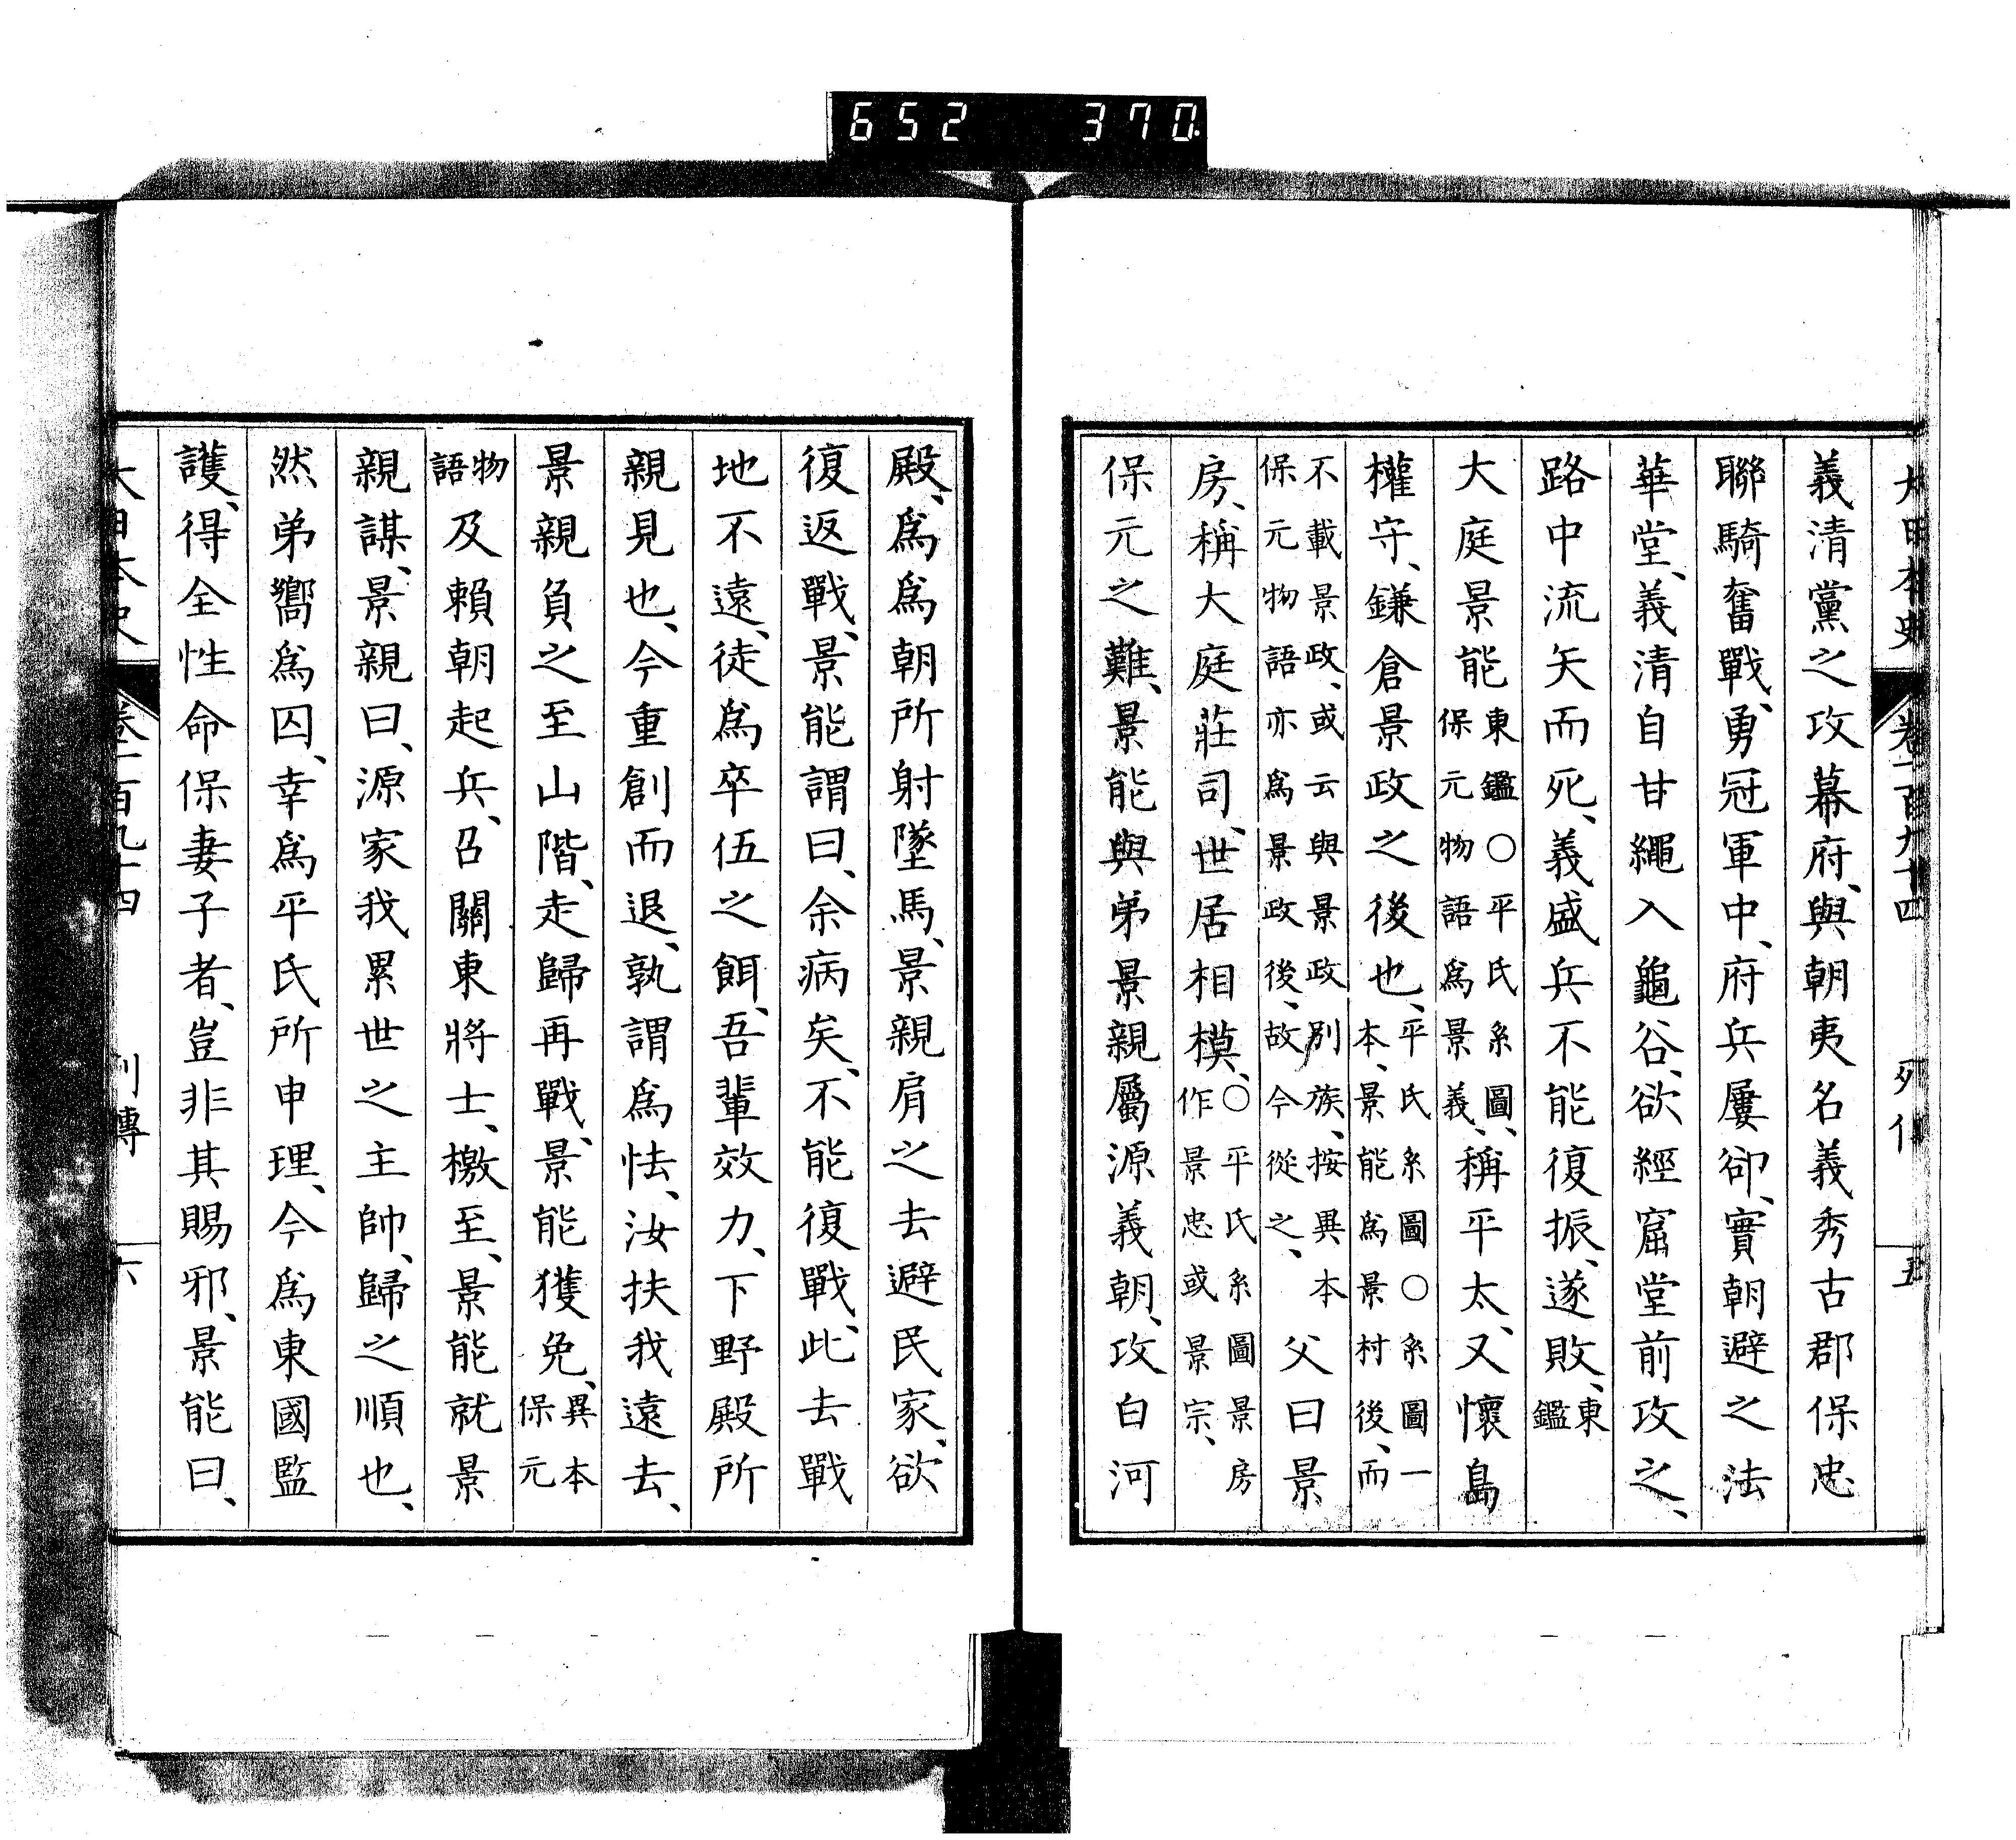 652 370
大日本史 卷一百九十四 列傳 五
義清黨之攻幕府、與朝夷名義秀古郡保忠
聯騎奮戰、勇冠軍中、府兵屢卻、實朝避之法
華堂、義清自甘繩入龜谷、欲經窟堂前攻之、
路中流矢而死、義盛兵不能復振、遂敗、東鑑
大庭景能東鑑○平氏系圖、保元物語爲景義、稱平太、又懷島
權守、鎌倉景政之後也、平氏系圖○系圖一本、景能爲景村後、而
不載景政、或云與景政別族、按異本保元物語亦爲景政後、故今從之、父曰景
房、稱大庭莊司、世居相模、○平氏系圖景房作景忠或景宗、
保元之難、景能與弟景親屬源義朝、攻白河
殿、爲爲朝所射墜馬、景親肩之去避民家、欲
復返戰、景能謂曰、余病矣、不能復戰、此去戰
地不遠、徒爲卒伍之餌、吾輩效力、下野殿所
親見也、今重創而退、孰謂爲怯、汝扶我遠去、
景親負之至山階、走歸再戰、景能獲免、異本保元
物語及賴朝起兵、召關東將士、檄至、景能就景
親謀、景親曰、源家我累世之主帥、歸之順也、
然弟嚮爲囚、幸爲平氏所申理、今爲東國監
護、得全性命保妻子者、豈非其賜邪、景能曰、
大日本史 卷一百九十四 列傳 六